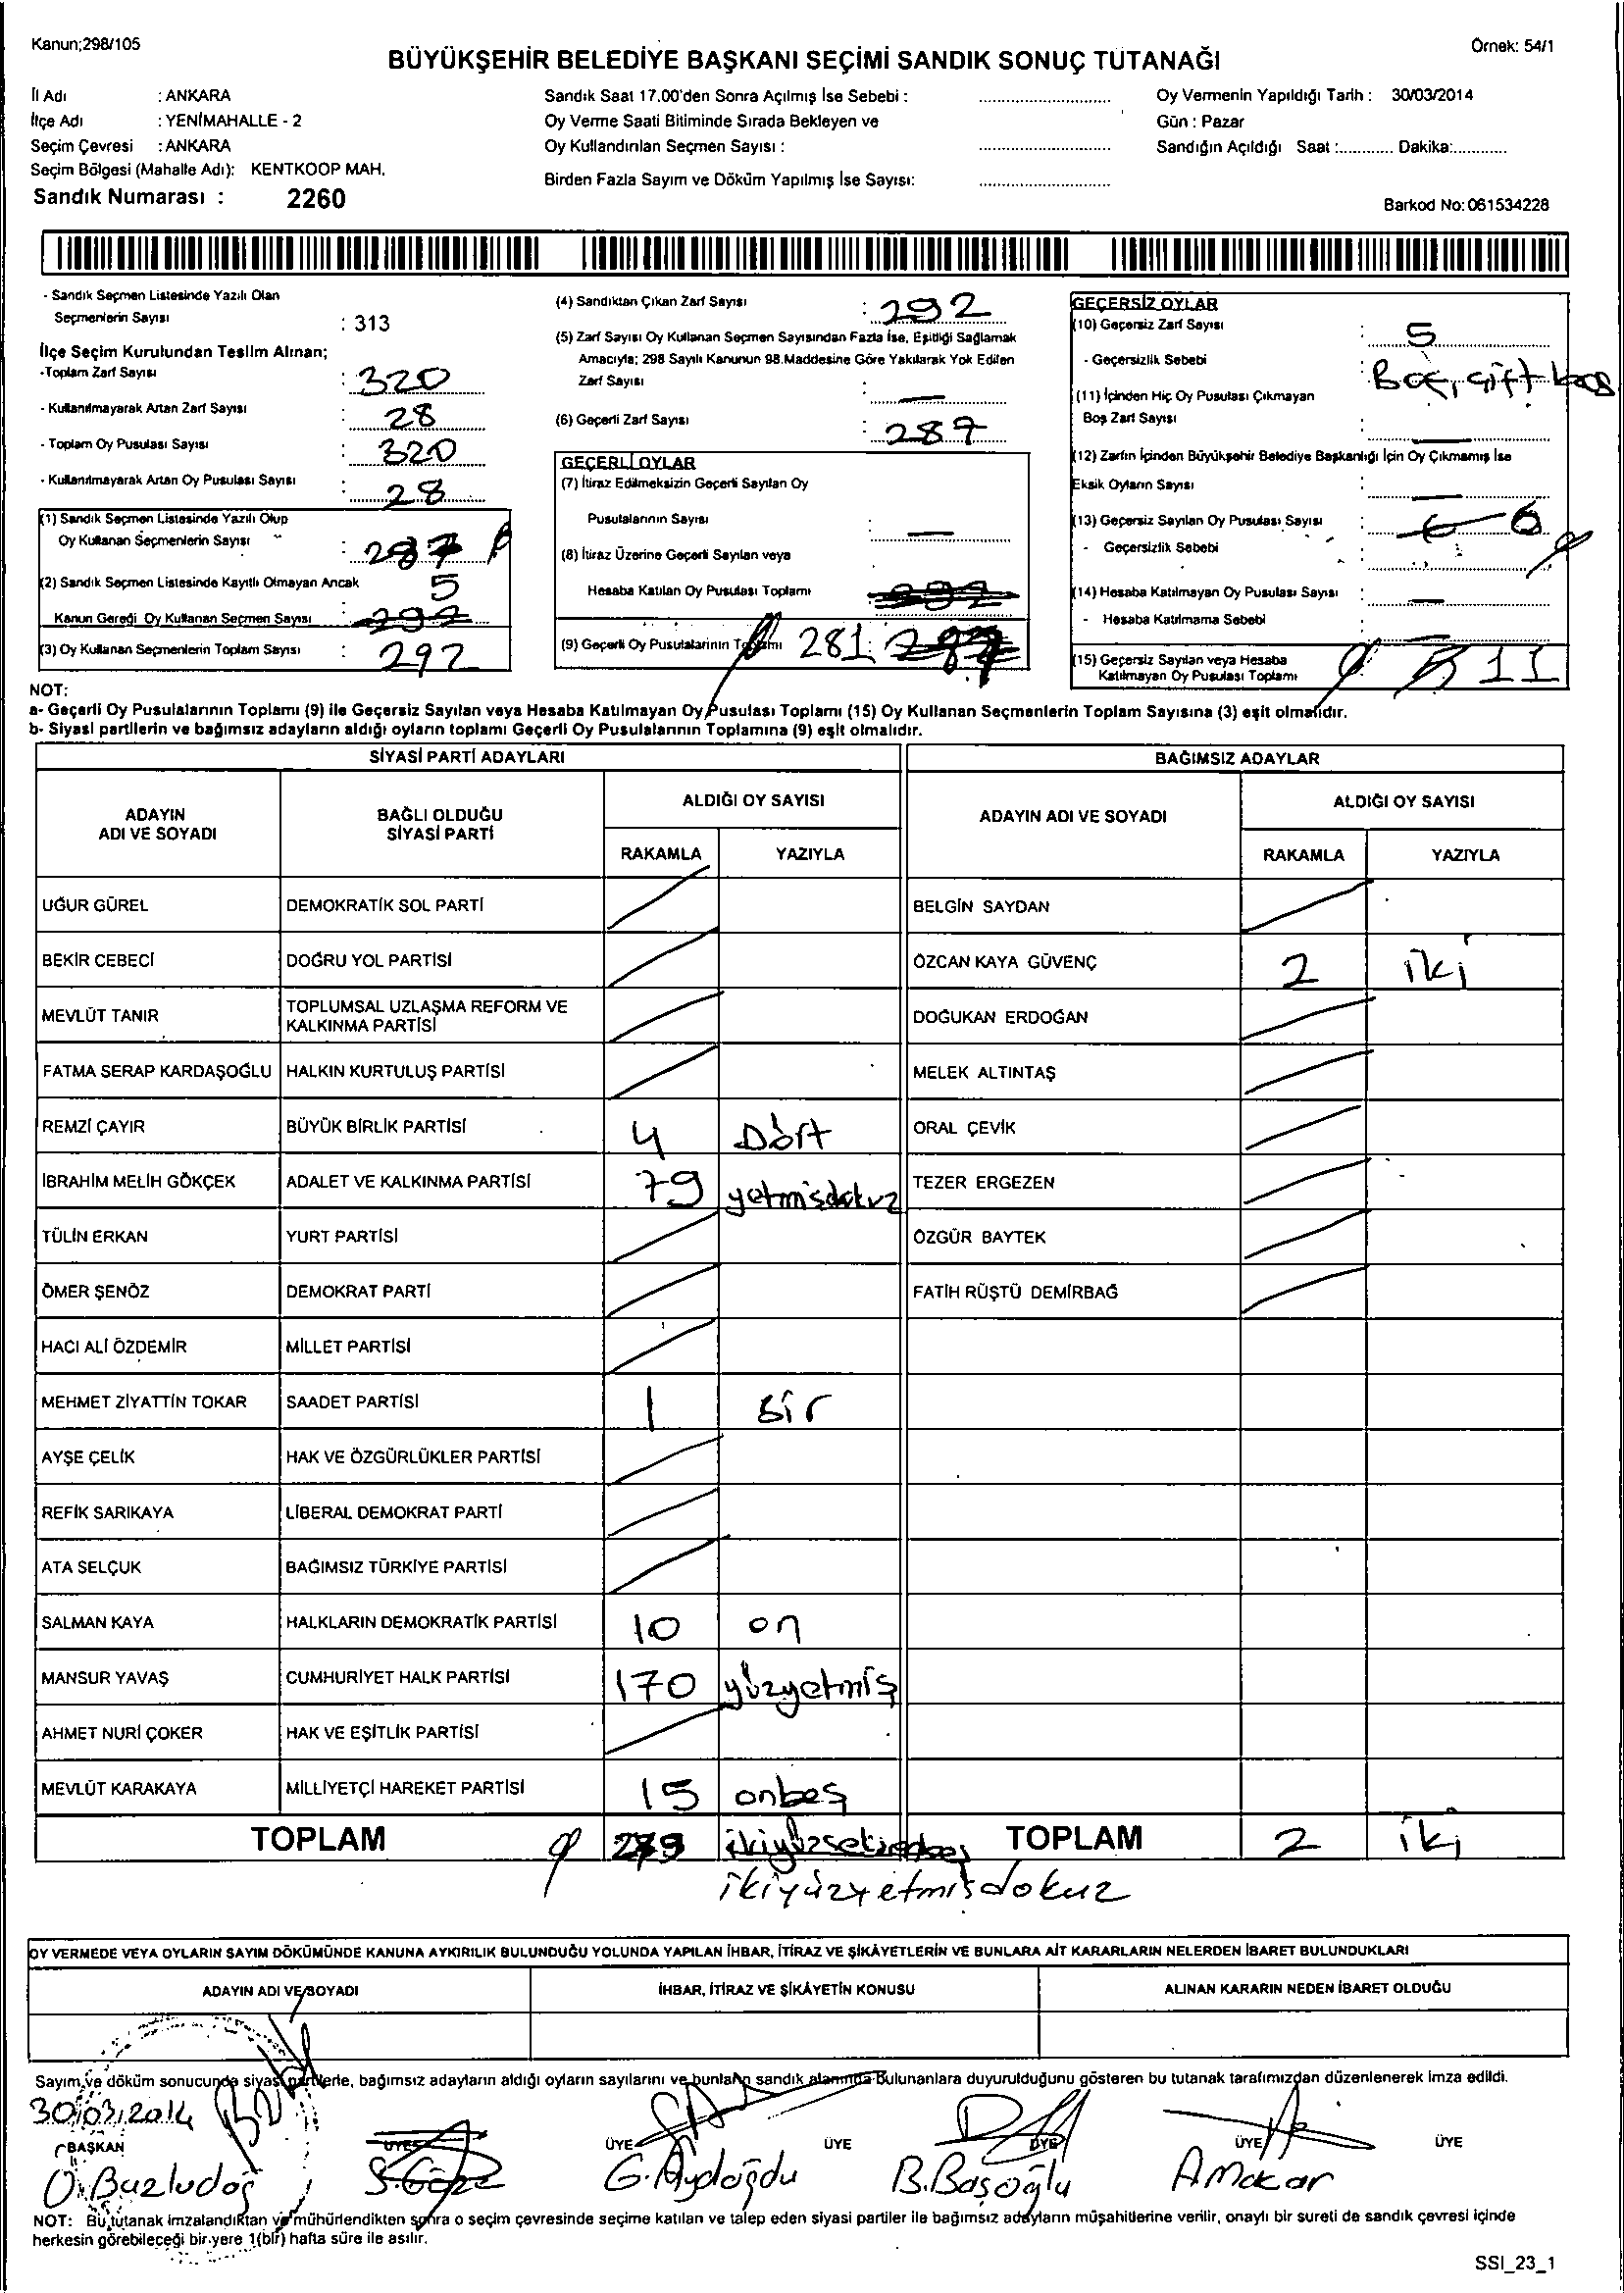 Kanun;298/105
Örnek: 54/1
BÜYÜKŞEHİR BELEDİYE BAŞKANI SEÇİMİ SANDIK SONUÇ TUTANAĞI
İl Adı : ANKARA
İlçe Adı : YENİMAHALLE - 2
Seçim Çevresi : ANKARA
Seçim Bölgesi (Mahalle Adı): KENTKOOP MAH.
Sandık Numarası : 2260
Sandık Saat 17.00'den Sonra Açılmış İse Sebebi :
Oy Verme Saati Bitiminde Sırada Bekleyen ve
Oy Kullandırılan Seçmen Sayısı :
Birden Fazla Sayım ve Döküm Yapılmış İse Sayısı:
Oy Vermenin Yapıldığı Tarih : 30/03/2014
Gün : Pazar
Sandığın Açıldığı Saat :............ Dakika:............
Barkod No: 061534228
- Sandık Seçmen Listesinde Yazılı Olan
Seçmenlerin Sayısı : 313
İlçe Seçim Kurulundan Teslim Alınan;
-Toplam Zarf Sayısı : 320
- Kullanılmayarak Artan Zarf Sayısı : 28
- Toplam Oy Pusulası Sayısı : 320
- Kullanılmayarak Artan Oy Pusulası Sayısı : 28
(1) Sandık Seçmen Listesinde Yazılı Olup
Oy Kullanan Seçmenlerin Sayısı : 287
(2) Sandık Seçmen Listesinde Kayıtlı Olmayan Ancak 5
Kanun Gereği Oy Kullanan Seçmen Sayısı : 292
(3) Oy Kullanan Seçmenlerin Toplam Sayısı : 292
(4) Sandıktan Çıkan Zarf Sayısı : 292
(5) Zarf Sayısı Oy Kullanan Seçmen Sayısından Fazla İse, Eşitliği Sağlamak
Amacıyla; 298 Sayılı Kanunun 98.Maddesine Göre Yakılarak Yok Edilen
Zarf Sayısı : —
(6) Geçerli Zarf Sayısı : 287
GEÇERLİ OYLAR
(7) İtiraz Edilmeksizin Geçerli Sayılan Oy
Pusulalarının Sayısı : —
(8) İtiraz Üzerine Geçerli Sayılan veya
Hesaba Katılan Oy Pusulası Toplamı
(9) Geçerli Oy Pusulalarının Toplamı 281 287
GEÇERSİZ OYLAR
(10) Geçersiz Zarf Sayısı : 5
- Geçersizlik Sebebi : Boş, çift
(11) İçinden Hiç Oy Pusulası Çıkmayan
Boş Zarf Sayısı : —
(12) Zarfın İçinden Büyükşehir Belediye Başkanlığı İçin Oy Çıkmamış İse
Eksik Oyların Sayısı : —
(13) Geçersiz Sayılan Oy Pusulası Sayısı : 6
- Geçersizlik Sebebi :
(14) Hesaba Katılmayan Oy Pusulası Sayısı : —
- Hesaba Katılmama Sebebi :
(15) Geçersiz Sayılan veya Hesaba
Katılmayan Oy Pusulası Toplamı 11
NOT:
a- Geçerli Oy Pusulalarının Toplamı (9) ile Geçersiz Sayılan veya Hesaba Katılmayan Oy Pusulası Toplamı (15) Oy Kullanan Seçmenlerin Toplam Sayısına (3) eşit olmalıdır.
b- Siyasi partilerin ve bağımsız adayların aldığı oyların toplamı Geçerli Oy Pusulalarının Toplamına (9) eşit olmalıdır.
SİYASİ PARTİ ADAYLARI
ADAYIN ADI VE SOYADI BAĞLI OLDUĞU SİYASİ PARTİ ALDIĞI OY SAYISI
RAKAMLA YAZIYLA
UĞUR GÜREL DEMOKRATİK SOL PARTİ
BEKİR CEBECİ DOĞRU YOL PARTİSİ
MEVLÜT TANIR TOPLUMSAL UZLAŞMA REFORM VE KALKINMA PARTİSİ
FATMA SERAP KARDAŞOĞLU HALKIN KURTULUŞ PARTİSİ
REMZİ ÇAYIR BÜYÜK BİRLİK PARTİSİ 4 Dört
İBRAHİM MELİH GÖKÇEK ADALET VE KALKINMA PARTİSİ 79 yetmişdokuz
TÜLİN ERKAN YURT PARTİSİ
ÖMER ŞENÖZ DEMOKRAT PARTİ
HACI ALİ ÖZDEMİR MİLLET PARTİSİ
MEHMET ZİYATTİN TOKAR SAADET PARTİSİ 1 Bir
AYŞE ÇELİK HAK VE ÖZGÜRLÜKLER PARTİSİ
REFİK SARIKAYA LİBERAL DEMOKRAT PARTİ
ATA SELÇUK BAĞIMSIZ TÜRKİYE PARTİSİ
SALMAN KAYA HALKLARIN DEMOKRATİK PARTİSİ 10 on
MANSUR YAVAŞ CUMHURİYET HALK PARTİSİ 170 yüzyetmiş
AHMET NURİ ÇOKER HAK VE EŞİTLİK PARTİSİ
MEVLÜT KARAKAYA MİLLİYETÇİ HAREKET PARTİSİ 15 onbeş
TOPLAM 279
ikiyüzyetmişdokuz
BAĞIMSIZ ADAYLAR
ADAYIN ADI VE SOYADI ALDIĞI OY SAYISI
RAKAMLA YAZIYLA
BELGİN SAYDAN
ÖZCAN KAYA GÜVENÇ 2 iki
DOĞUKAN ERDOĞAN
MELEK ALTINTAŞ
ORAL ÇEVİK
TEZER ERGEZEN
ÖZGÜR BAYTEK
FATİH RÜŞTÜ DEMİRBAĞ
TOPLAM 2 iki
OY VERMEDE VEYA OYLARIN SAYIM DÖKÜMÜNDE KANUNA AYKIRILIK BULUNDUĞU YOLUNDA YAPILAN İHBAR, İTİRAZ VE ŞİKÂYETLERİN VE BUNLARA AİT KARARLARIN NELERDEN İBARET BULUNDUKLARI
ADAYIN ADI VE SOYADI İHBAR, İTİRAZ VE ŞİKÂYETİN KONUSU ALINAN KARARIN NEDEN İBARET OLDUĞU
Sayım ve döküm sonucunda siyasi partilerle, bağımsız adayların aldığı oyların sayılarını ve bunların sandık alanında bulunanlara duyurulduğunu gösteren bu tutanak tarafımızdan düzenlenerek imza edildi.
30/03/2014
BAŞKAN ÜYE ÜYE ÜYE ÜYE ÜYE ÜYE
O.Buzludağ S.Göze G.Aydoğdu B.Başoğlu A.Makar
NOT: Bu tutanak imzalandıktan ve mühürlendikten sonra o seçim çevresinde seçime katılan ve talep eden siyasi partiler ile bağımsız adayların müşahitlerine verilir, onaylı bir sureti de sandık çevresi içinde
herkesin görebileceği bir yere 1(bir) hafta süre ile asılır.
SSI_23_1